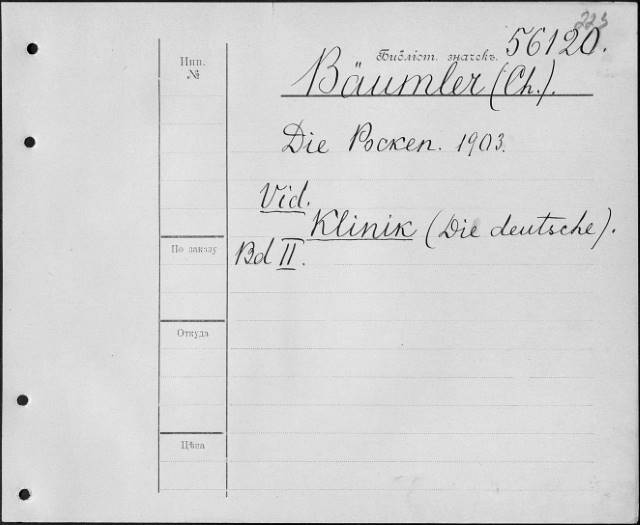 223
Библіот. значекъ. 56120.
Инв.
№
Bäumler (Ch.).
Die Pocken. 1903.
Vid.
Klinik (Die deutsche).
По заказу
Bd II.
Откуда
Цѣна